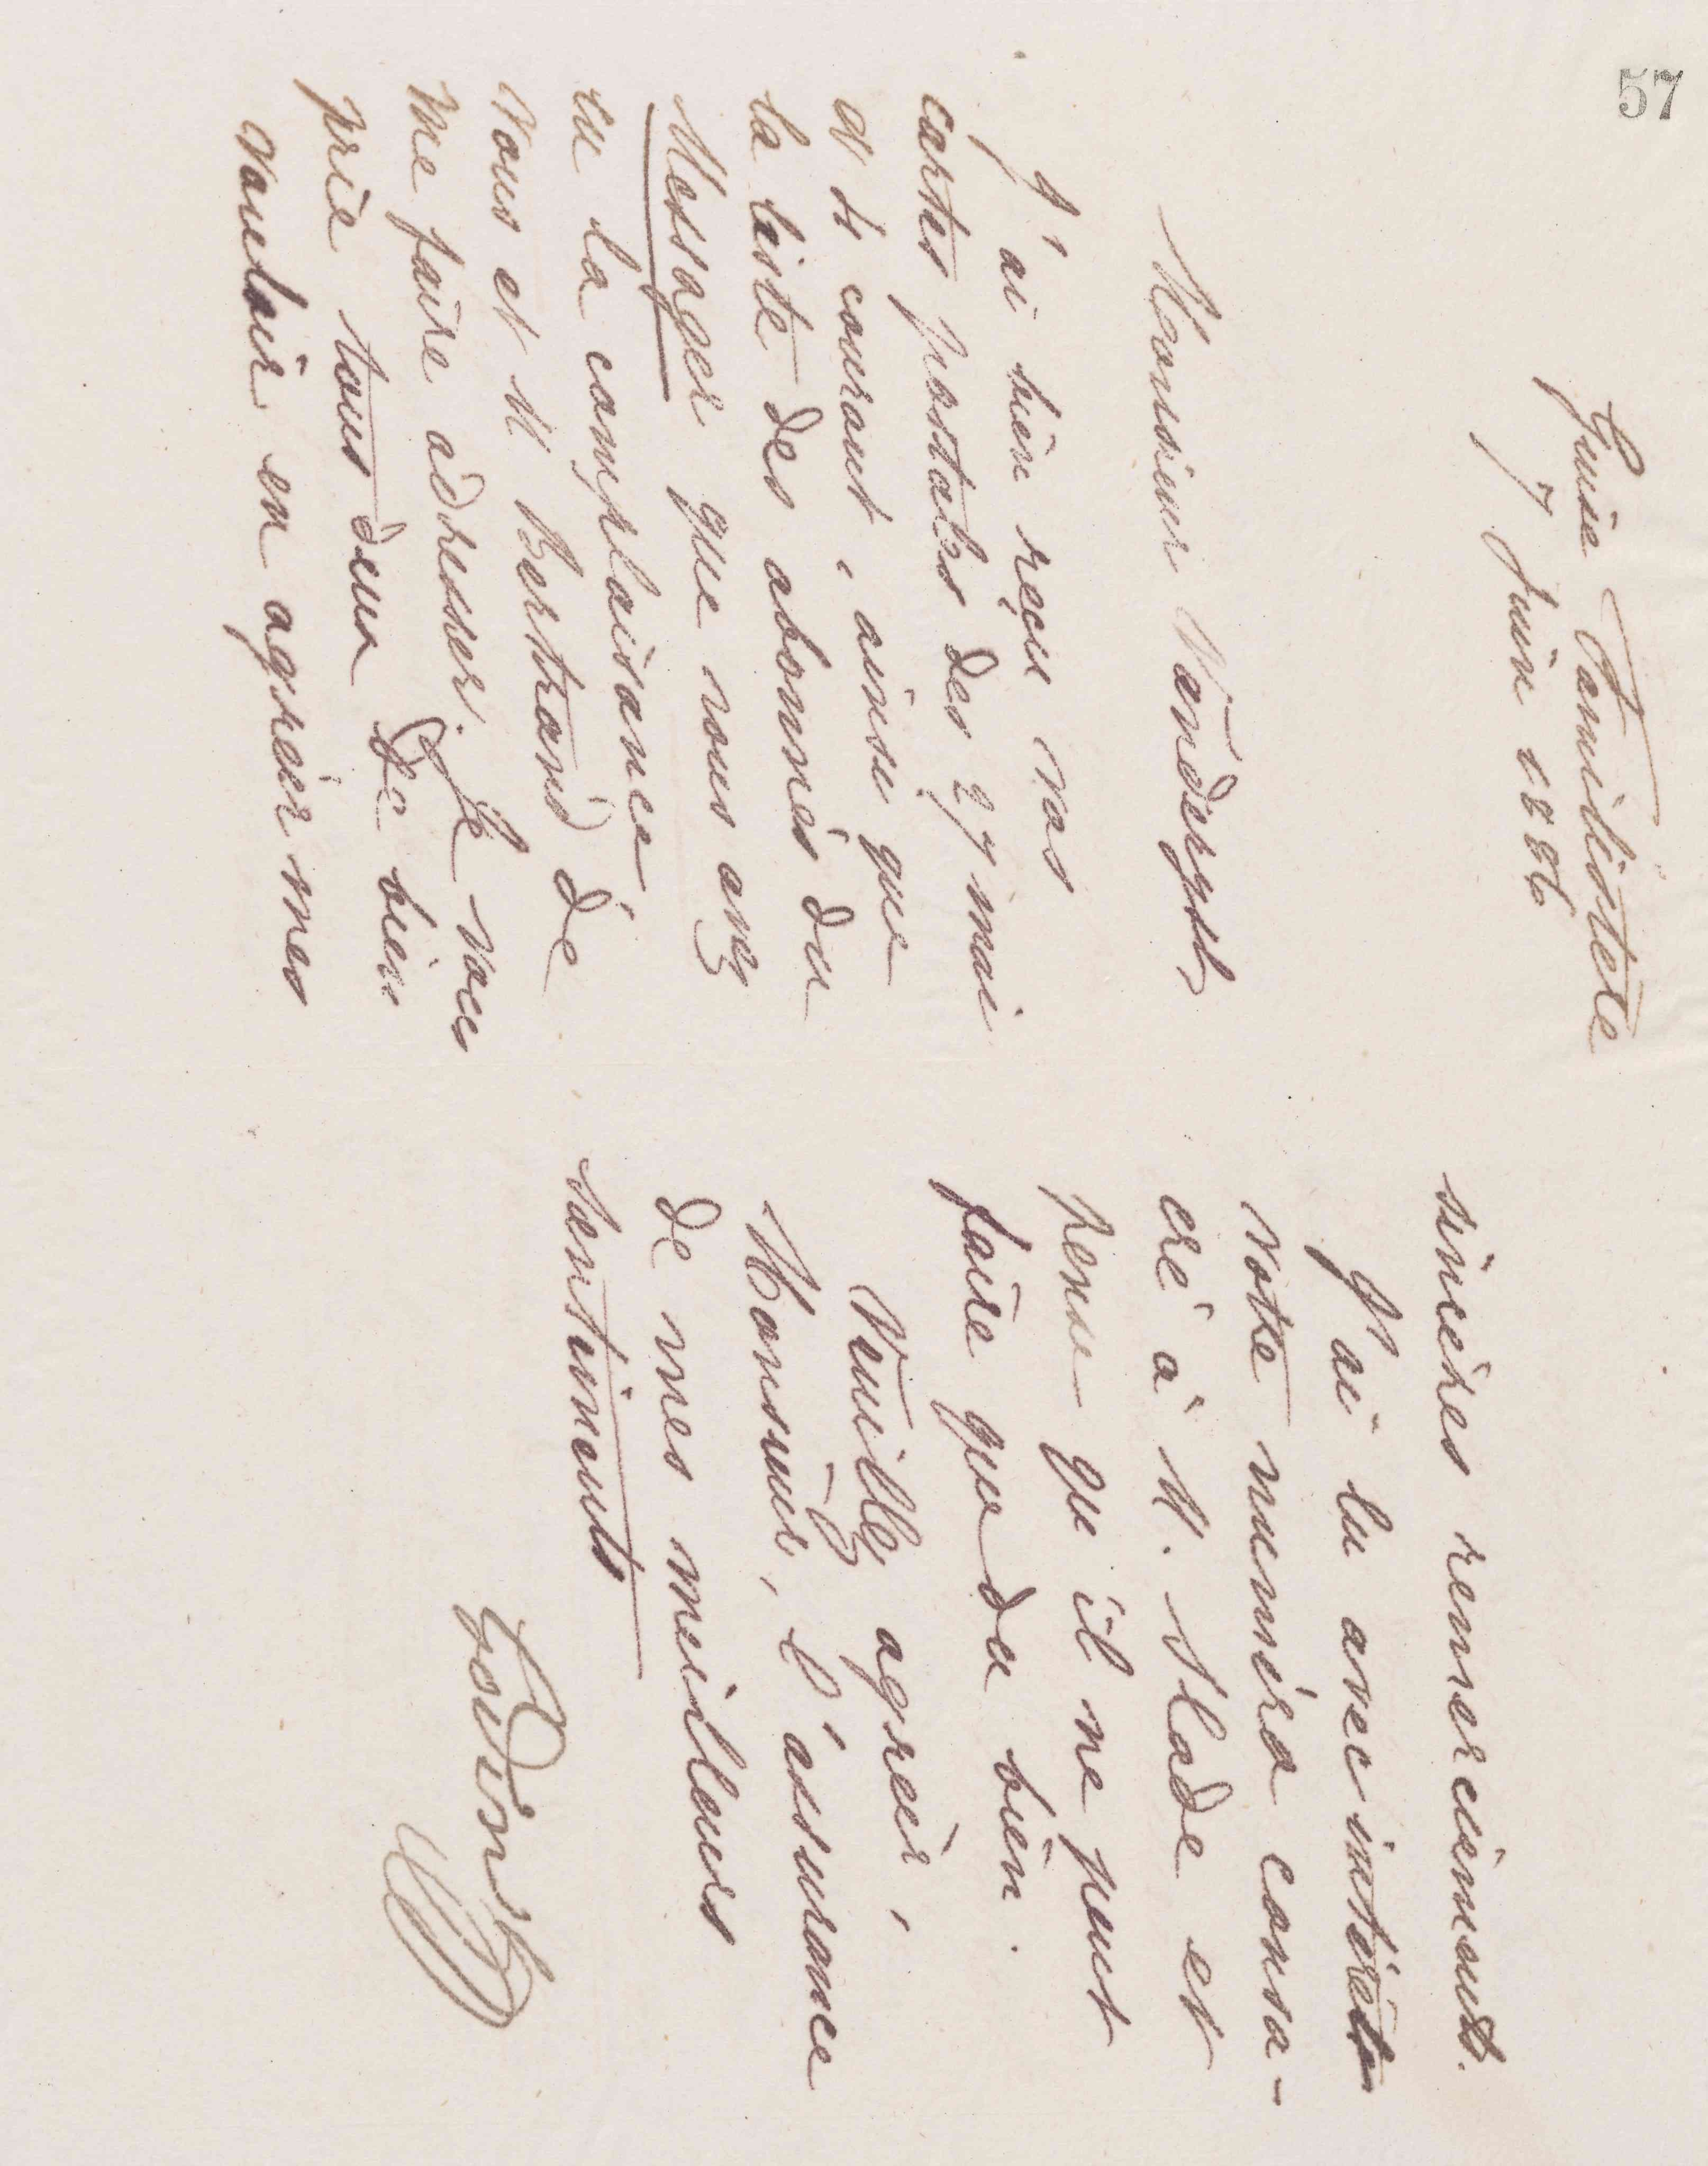 57
Guise Familistère
7 Juin 1886
Monsieur Vanderyst,
J'ai bien reçu vos
cartes postales des 27 mai
et 4 courant, ainsi que
la liste des abonnés du
Messager que vous avez
eu la complaisance
vous et M Bertrand de
me faire adresser. Je vous
prie tous deux de bien
vouloir en agréer mes
sincères remerciements.
J'ai lu avec intérêt
votre numéro consa-
cré à M. Slade et
pense qu'il ne peut
faire que du bien.
Veuillez agréer,
Monsieur, l'assurance
de mes meilleurs
sentiments
Godin